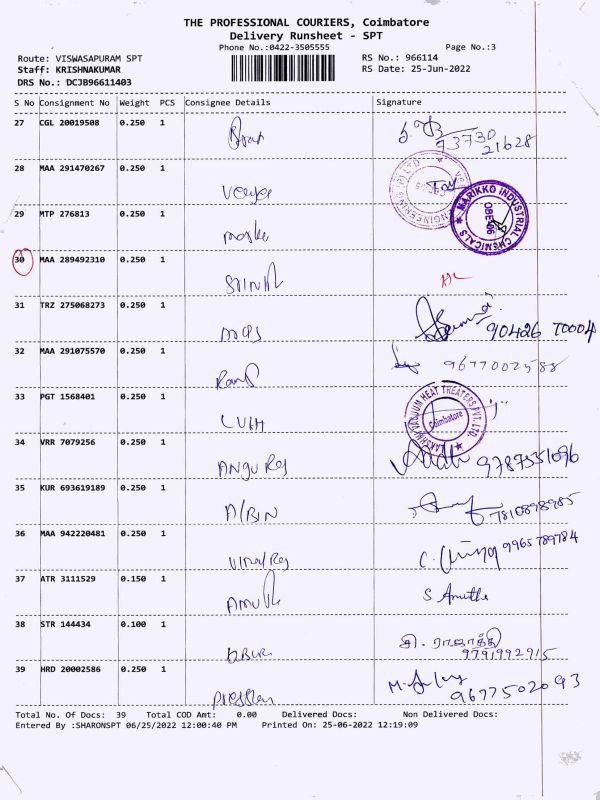 THE PROFESSIONAL COURIERS, Coimbatore
Delivery Runsheet - SPT
Phone No.:0422-3505555 Page No.:3
Route: VISWASAPURAM SPT RS No.: 966114
Staff: KRISHNAKUMAR RS Date: 25-Jun-2022
DRS No.: DCJB96611403
S No Consignment No Weight PCS Consignee Details Signature
27 CGL 20019508 0.250 1
93730
21628
28 MAA 291470267 0.250 1
29 MTP 276813 0.250 1
MARIKKO INDUSTRIAL CHEMICALS
30 MAA 289492310 0.250 1
31 TRZ 275068273 0.250 1
90426 70004
32 MAA 291075570 0.250 1
9677002588
33 PGT 1568401 0.250 1
Coimbatore
34 VRR 7079256 0.250 1
ANGU Raj
35 KUR 693619189 0.250 1
AlBIN 7810898985
36 MAA 942220481 0.250 1
9965789784
37 ATR 3111529 0.150 1
S Amutha
38 STR 144434 0.100 1
9791992915
39 HRD 20002586 0.250 1
9677502093
Total No. Of Docs: 39 Total COD Amt: 0.00 Delivered Docs: Non Delivered Docs:
Entered By :SHARONSPT 06/25/2022 12:00:40 PM Printed On: 25-06-2022 12:19:09